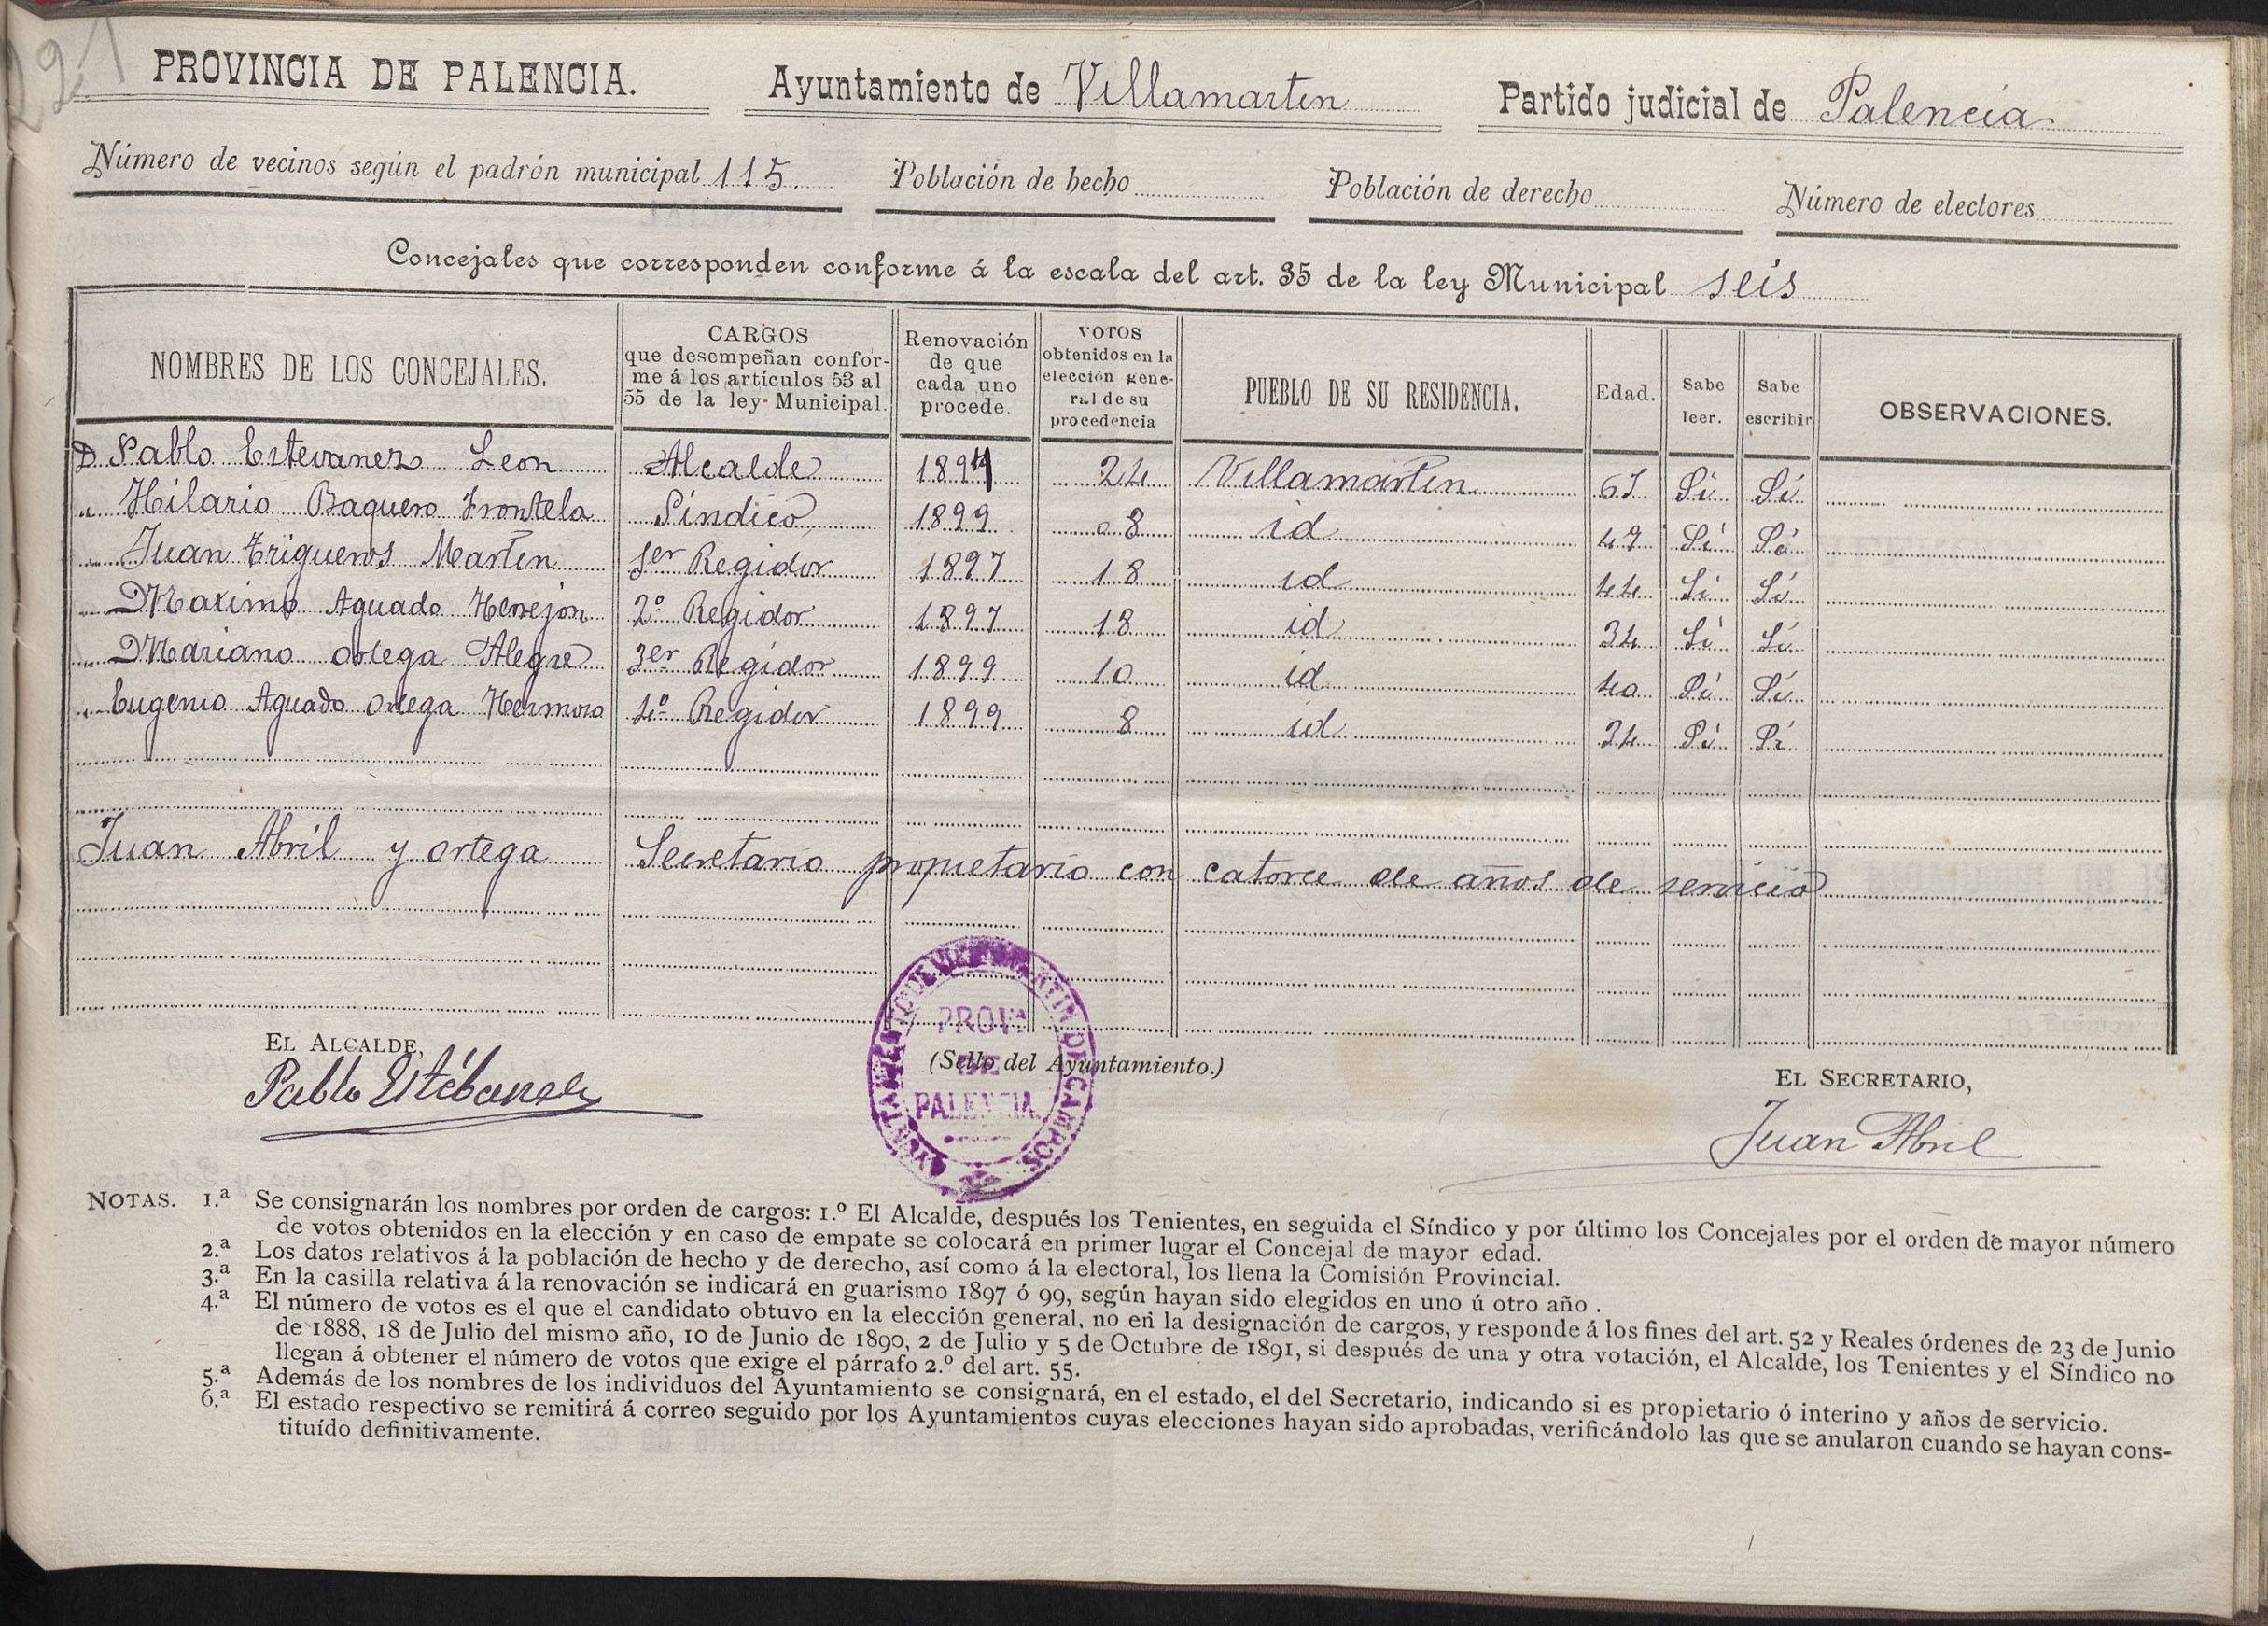 221
PROVINCIA DE PALENCIA. Ayuntamiento de Villamartin Partido judicial de Palencia
Número de vecinos según el padrón municipal 115. Población de hecho Población de derecho Número de electores
Concejales que corresponden conforme á la escala del art. 35 de la ley Municipal seis
NOMBRES DE LOS CONCEJALES. CARGOS que desempeñan conforme á los artículos 53 al 55 de la ley Municipal. Renovación de que cada uno procede. VOTOS obtenidos en la elección general de su procedencia PUEBLO DE SU RESIDENCIA. Edad. Sabe leer. Sabe escribir OBSERVACIONES.
D. Pablo Estevanez Leon Alcalde 24 Villamartin Si Si
" Hilario Baquero Frontela Sindico 1899 08 id 49 Si Si
" Juan Trigueros Martin 1er Regidor 1897 18 id 44 Si Si
" Maximo Aguado 2º Regidor 1897 18 id 34 Si Si
" Mariano Ortega Alegre 3er Regidor 1899 10 id 40 Si Si
" Eugenio Aguado Ortega Hermoso 4º Regidor 1899 8 id 34 Si Si
Juan Abril y Ortega Secretario propietario con catorce de años de servicio
EL ALCALDE,
Pablo Estébanez
(Sello del Ayuntamiento.)
AYUNTAMIENTO DE VILLAMARTIN DE CAMPOS
PROVA
DE
PALENCIA
EL SECRETARIO,
Juan Abril
NOTAS. 1.ª Se consignarán los nombres por orden de cargos: 1.º El Alcalde, después los Tenientes, en seguida el Síndico y por último los Concejales por el orden de mayor número
de votos obtenidos en la elección y en caso de empate se colocará en primer lugar el Concejal de mayor edad.
2.ª Los datos relativos á la población de hecho y de derecho, así como á la electoral, los llena la Comisión Provincial.
3.ª En la casilla relativa á la renovación se indicará en guarismo 1897 ó 99, según hayan sido elegidos en uno ú otro año .
4.ª El número de votos es el que el candidato obtuvo en la elección general, no en la designación de cargos, y responde á los fines del art. 52 y Reales órdenes de 23 de Junio
de 1888, 18 de Julio del mismo año, 10 de Junio de 1890, 2 de Julio y 5 de Octubre de 1891, si después de una y otra votación, el Alcalde, los Tenientes y el Síndico no
llegan á obtener el número de votos que exige el párrafo 2.º del art. 55.
5.ª Además de los nombres de los individuos del Ayuntamiento se consignará, en el estado, el del Secretario, indicando si es propietario ó interino y años de servicio.
6.ª El estado respectivo se remitirá á correo seguido por los Ayuntamientos cuyas elecciones hayan sido aprobadas, verificándolo las que se anularon cuando se hayan cons-
tituído definitivamente.